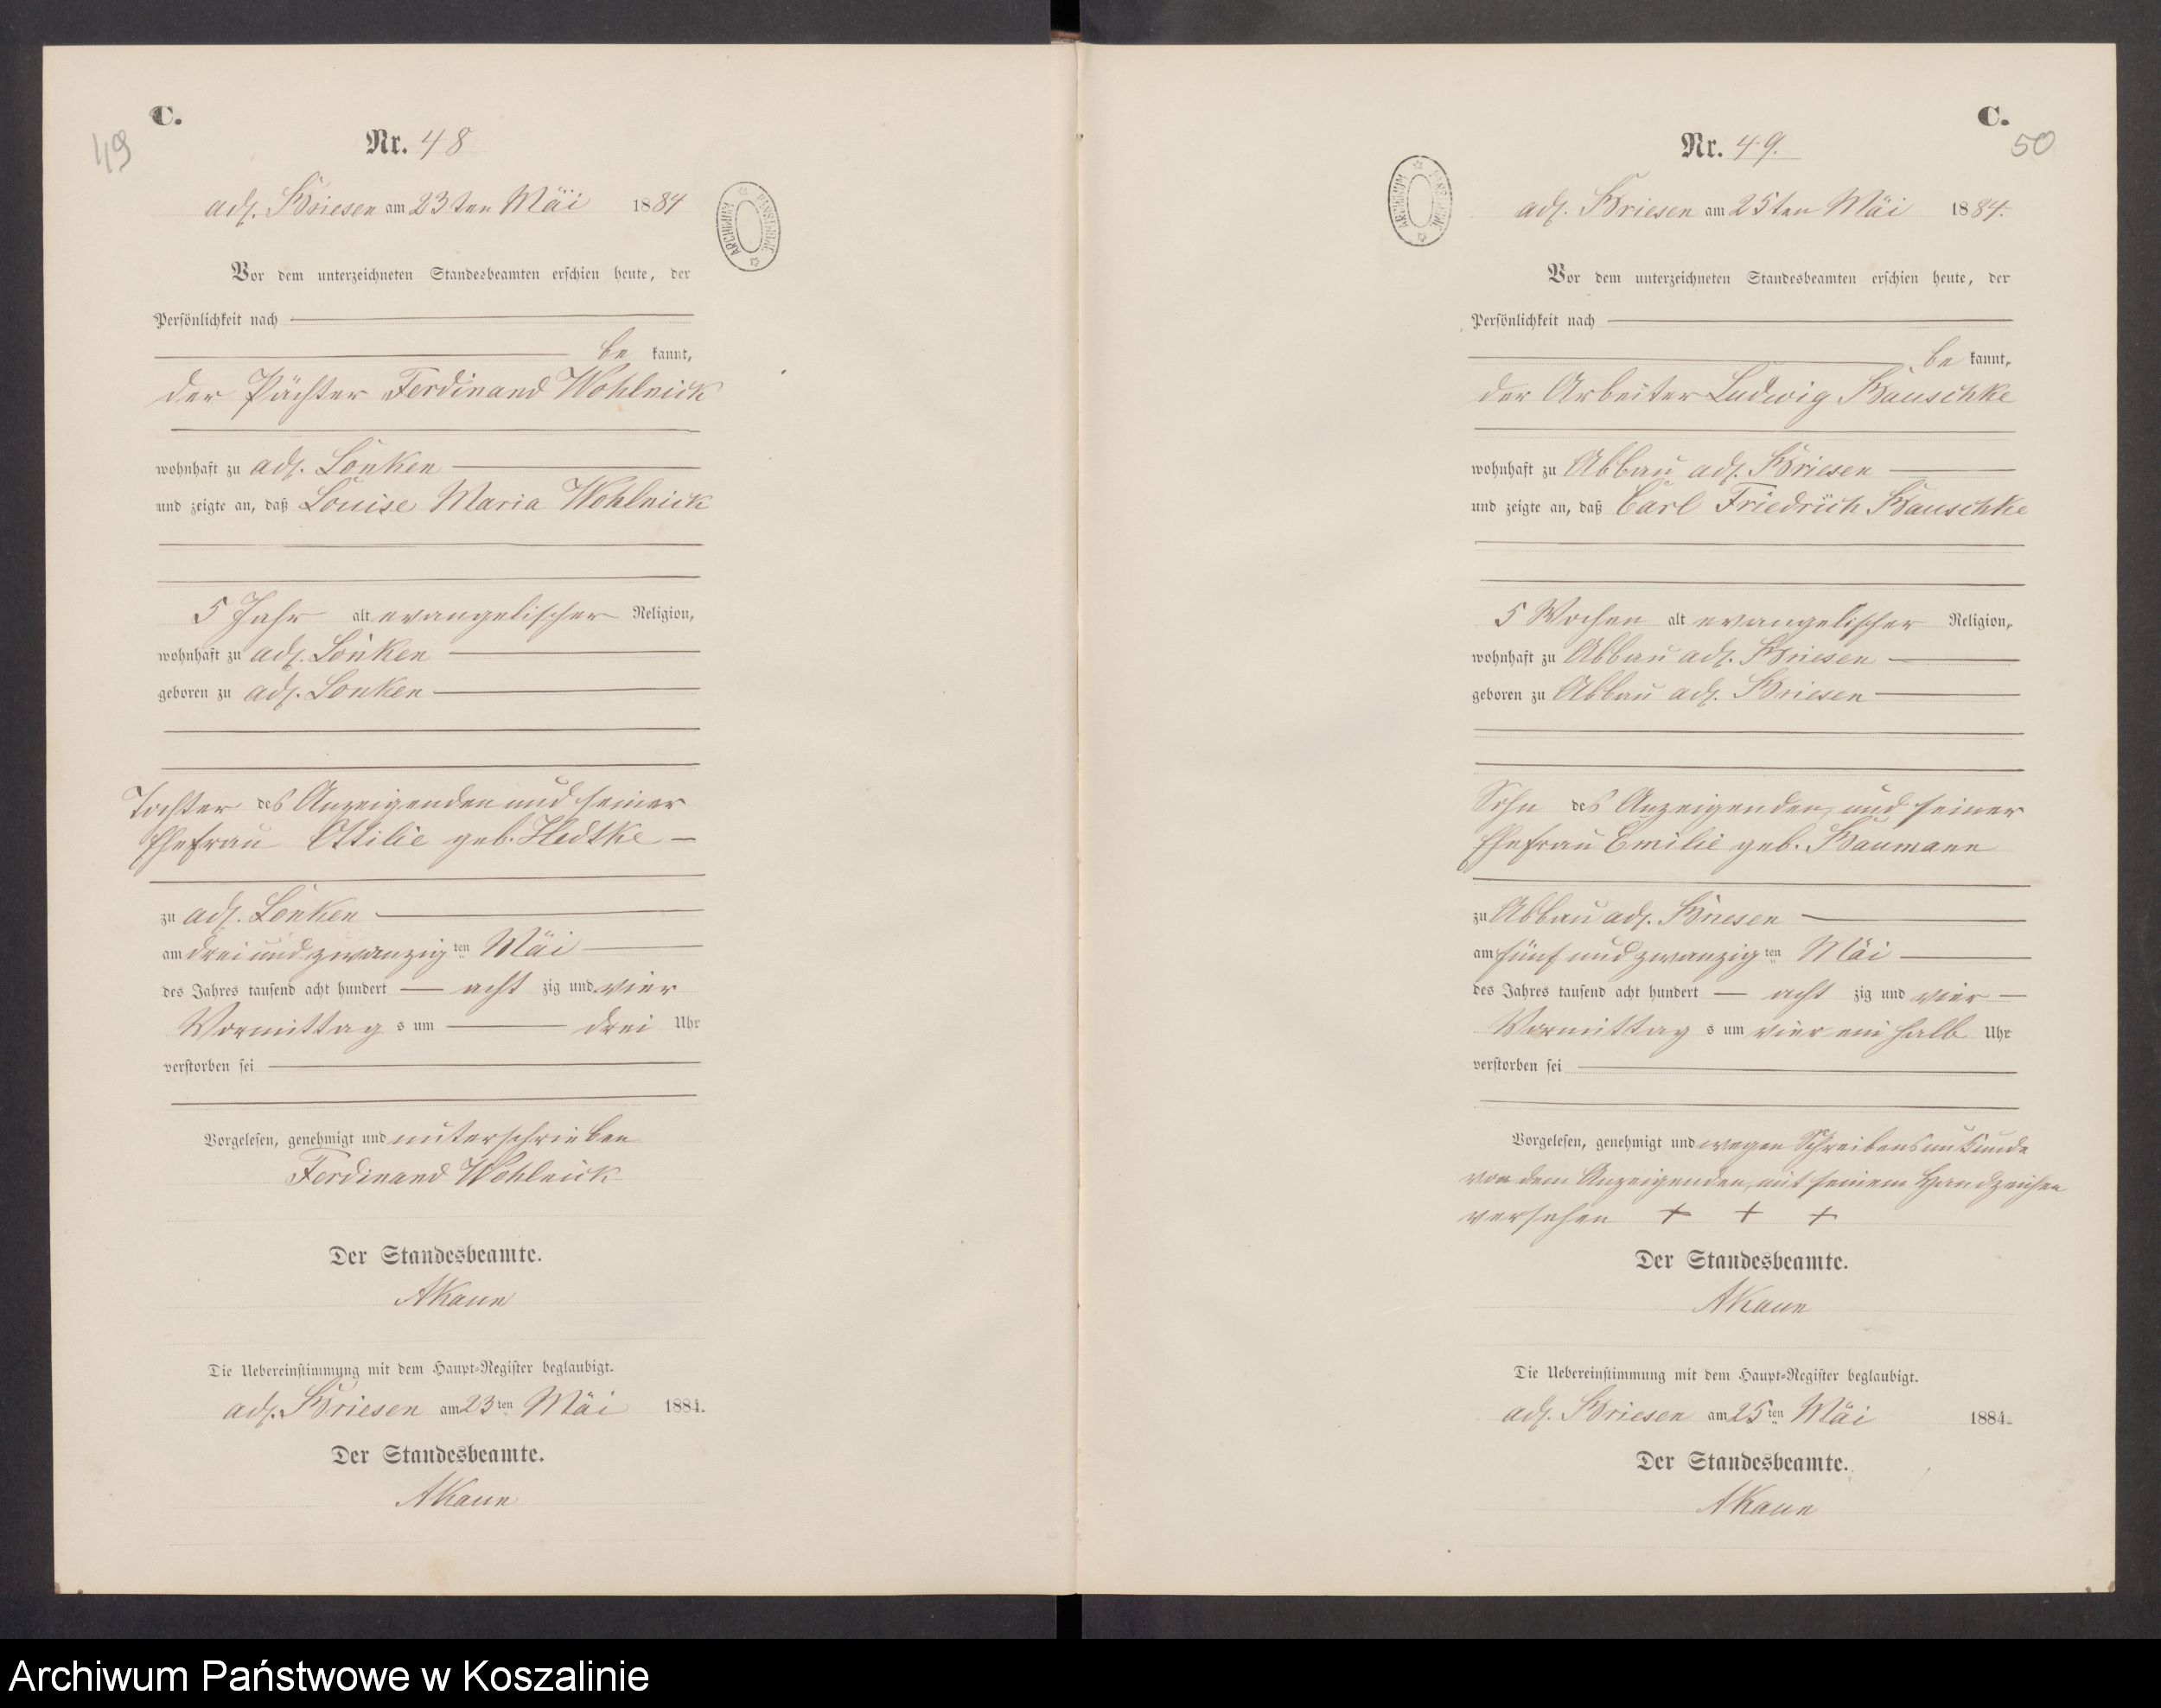 C.
49
Nr. 48
adl. Briesen am 23ten Mai 1884
ARCHIWUM PAŃSTWOWE
Vor dem unterzeichneten Standesbeamten erschien heute, der
Persönlichkeit nach
be kannt,
der Pächter Ferdinand Wohlneick
wohnhaft zu adl. Lonken
und zeigte an, daß Louise Maria Wohlneick
5 Jahr alt evangelischer Religion,
wohnhaft zu adl. Lonken
geboren zu adl. Lonken
Tochter des Anzeigenden und seiner
Ehefrau Ottilie geb. Hedtke
zu adl. Lonken
am drei und zwanzig ten Mai
des Jahres tausend acht hundert acht zig und vier
Vormittag s um drei Uhr
verstorben sei
Vorgelesen, genehmigt und unterschrieben
Ferdinand Wohlneick
Der Standesbeamte.
AKaun
Die Uebereinstimmung mit dem Haupt-Register beglaubigt.
adl. Briesen am 23 ten Mai 1884.
Der Standesbeamte.
AKaun
C.
50
Nr. 49.
adl. Briesen am 25ten Mai 1884.
ARCHIWUM PAŃSTWOWE
Vor dem unterzeichneten Standesbeamten erschien heute, der
Persönlichkeit nach
be kannt,
der Arbeiter Ludwig Bauschke
wohnhaft zu Abbau adl. Briesen
und zeigte an, daß Carl Friedrich Bauschke
5 Wochen alt evangelischer Religion,
wohnhaft zu Abbau adl. Briesen
geboren zu Abbau adl. Briesen
Sohn des Anzeigenden, und seiner
Ehefrau Emilie geb. Baumann
zu Abbau adl. Briesen
am fünf und zwanzig ten Mai
des Jahres tausend acht hundert acht zig und vier
Vormittag s um vier ein halb Uhr
verstorben sei
Vorgelesen, genehmigt und wegen Schreibensunkunde
von dem Anzeigenden, mit seinem Handzeichen
versehen + + +
Der Standesbeamte.
AKaun
Die Uebereinstimmung mit dem Haupt-Register beglaubigt.
adl. Briesen am 25 ten Mai 1884.
Der Standesbeamte.
AKaun
Archiwum Państwowe w Koszalinie